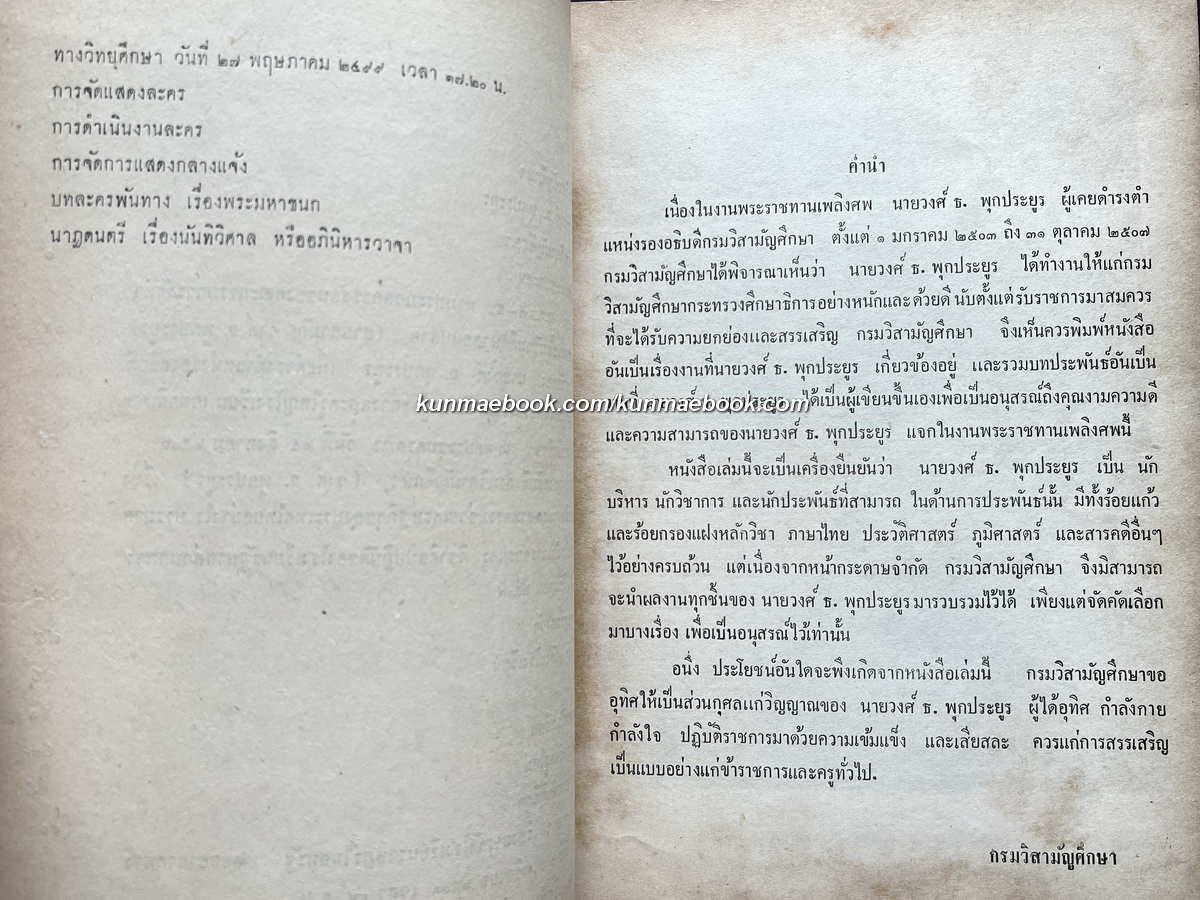 ทางวิทยุศึกษา วันที่ ๒๗ พฤษภาคม ๒๔๙๙ เวลา ๑๗.๒๐ น.
การจัดแสดงละคร
การดำเนินงานละคร
การจัดการแสดงกลางแจ้ง
บทละครพันทาง เรื่องพระมหาชนก
นาฏดนตรี เรื่องนันทิวิศาล หรืออภินิหารวาจา
คำนำ
เนื่องในงานพระราชทานเพลิงศพ นายวงศ์ ธ. พุกประยูร ผู้เคยดำรงตำ
แหน่งรองอธิบดีกรมวิสามัญศึกษา ตั้งแต่ ๑ มกราคม ๒๕๐๓ ถึง ๓๑ ตุลาคม ๒๕๐๗
กรมวิสามัญศึกษาได้พิจารณาเห็นว่า นายวงศ์ ธ. พุกประยูร ได้ทำงานให้แก่กรม
วิสามัญศึกษากระทรวงศึกษาธิการอย่างหนักและด้วยดี นับตั้งแต่รับราชการมาสมควร
ที่จะได้รับความยกย่องและสรรเสริญ กรมวิสามัญศึกษา จึงเห็นควรพิมพ์หนังสือ
อันเป็นเรื่องงานที่นายวงศ์ ธ. พุกประยูร เกี่ยวข้องอยู่ และรวมบทประพันธ์อันเป็น
kunmaebook.com/kunmaebook.com
ได้เป็นผู้เขียนขึ้นเองเพื่อเป็นอนุสรณ์ถึงคุณงามความดี
และความสามารถของนายวงศ์ ธ. พุกประยูร แจกในงานพระราชทานเพลิงศพนี้
หนังสือเล่มนี้จะเป็นเครื่องยืนยันว่า นายวงศ์ ธ. พุกประยูร เป็น นัก
บริหาร นักวิชาการ และนักประพันธ์ที่สามารถ ในด้านการประพันธ์นั้น มีทั้งร้อยแก้ว
และร้อยกรองแฝงหลักวิชา ภาษาไทย ประวัติศาสตร์ ภูมิศาสตร์ และสารคดีอื่นๆ
ไว้อย่างครบถ้วน แต่เนื่องจากหน้ากระดาษจำกัด กรมวิสามัญศึกษา จึงมิสามารถ
จะนำผลงานทุกชิ้นของ นายวงศ์ ธ. พุกประยูร มารวบรวมไว้ได้ เพียงแต่จัดคัดเลือก
มาบางเรื่อง เพื่อเป็นอนุสรณ์ไว้เท่านั้น
อนึ่ง ประโยชน์อันใดจะพึงเกิดจากหนังสือเล่มนี้ กรมวิสามัญศึกษาขอ
อุทิศให้เป็นส่วนกุศลแก่วิญญาณของ นายวงศ์ ธ. พุกประยูร ผู้ได้อุทิศ กำลังกาย
กำลังใจ ปฏิบัติราชการมาด้วยความเข้มแข็ง และเสียสละ ควรแก่การสรรเสริญ
เป็นแบบอย่างแก่ข้าราชการและครูทั่วไป.
กรมวิสามัญศึกษา